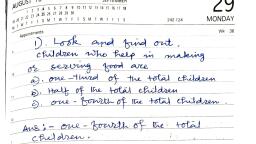 AUGUST
SEPTEMBER
29
MONDAY
Appointments
Wk 38
1). Look and find out.
Children who help in making
or serving food are
a). one-third of the total children
b) Half of the total children
c). one-fourth of the total children.
Ans:- one-fourth of the total
children